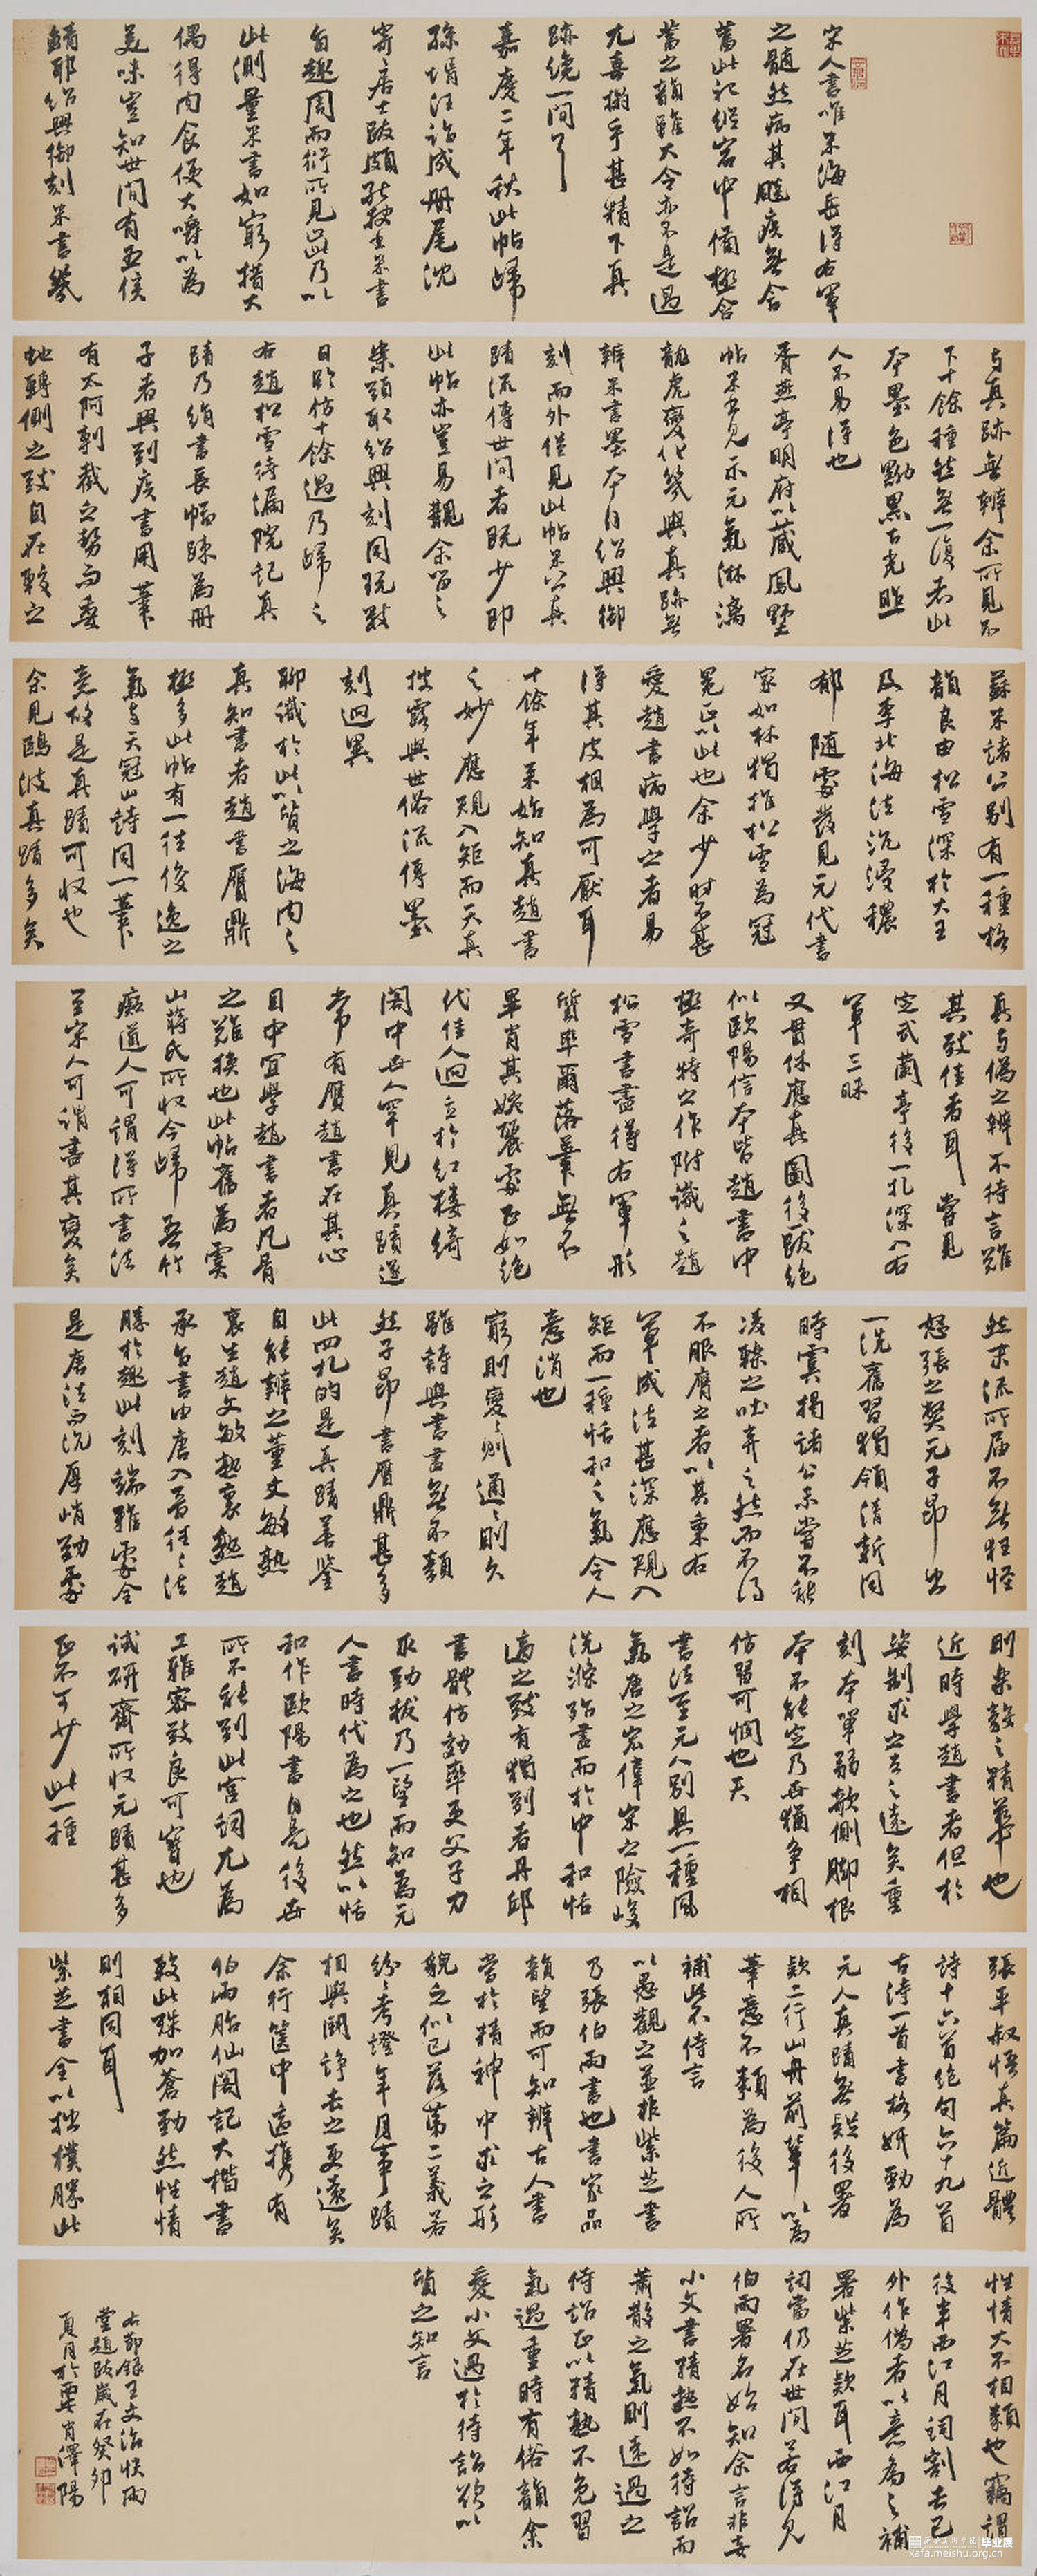 宋人书唯米海岳得右军
之髓然病其飚疾无含
蓄此礼经宕中备极含
蓄之韵虽大令亦不是过
尤喜榻手甚精下真
跡才一间耳
嘉庆二年秋此帖归
孙壻汪诣成册尾沈
寄居士跋颇能抉出米书
旨趣周而衍所见此乃以
此测量米书如穷措大
偶得肉食便大嚼以为
美味岂知世间有五侯
鲭耶绍兴御刻米书几
与真跡無辨余所见不
下十余種然無一復者此
本墨色黝黑古光照
人不易得也
胥燕亭明府以藏凤墅
帖米书见示元氣淋漓
龍虎變化幾與真跡無
辨米書墨本自绍興御
刻而外僅見此帖米公真
蹟流傳世間者既少即
此帖亦豈易觀余留之
案頭取绍興刻同玩数
日臨仿十餘過乃歸之
右趙松雪待漏院記真
蹟乃绢書長幅疎為册
子者興到疾書用筆
有太阿剸截之勢而委
蛇轉側之致自在較之
蘇米諸公别有一種格
韻良由松雪深於大王
及李北海法沉浸穠
郁隨處發見元代書
家如林獨推松雪為冠
冕正以此也余少時不甚
愛趙書病學之者易
得其皮相為可厭耳
十餘年来始知真趙書
之妙應規入矩而天真
披露與世俗流傳墨
刻迥異
聊識於此以質之海内之
真知書者趙書贋鼎
極多此帖有一往俊逸之
氣与天冠山詩同一筆
意故是真蹟可収也
余見鷗波真蹟多矣
真与偽之辨不待言難
其致佳者耳嘗見
定武蘭亭後一札深入右
軍三昧
又貫休應真圖後跋绝
似歐陽信本皆趙書中
極奇特之作附識之趙
松雪書盡得右軍形
質率爾落筆無不
畢肖其婉麗處正如绝
代佳人迥立於紅樓綺
閣中世人罕見真蹟遂
常有贋趙書在其心
目中宜學趙書者凡骨
之難换也此帖舊為虞
山蔣氏所収今歸吾竹
癡道人可謂得所書法
至宋人可謂書其變矣
然末流所届不無狂怪
怒張之弊元子昂出
一洗舊習獨领清新同
時虞揭諸公未嘗不能
凌轹之吐弃之然而不得
不服膺之者以其東右
軍成法甚深應規入
矩而一種恬和之氣令人
意消也
窮則變變則通通則久
雖詩與書書無不類
然子昂書贋鼎甚多
此四札的是真蹟善鑒
自能辨之董文敏熟
裏生趙文敏熟裏熟趙
承旨書由唐入晋往往法
勝於趣此刻端雅處全
是唐法而沉厚峭勁處
則樂毅之精華也
近時學趙書者但於
姿制求之去之遠矣重
刻本單弱欹側脚根
本不能定乃世猶争相
仿習可憫也夫
書法至元人别具一種風
氣唐之宏偉宋之險峻
洗滌殆盡而於中和恬
適之致有獨到者丹邱
書體仿效率更父子力
求勁拔乃一望而知為元
人書時代為之也然以恬
和作歐陽書自是後世
所不能到此宫詞尤為
工雅密致良可寶也
试研齋所収元蹟甚多
正不可少此一種
張平叔悟真篇近體
詩十六首绝句六十九首
古詩一首書格妍勁為
元人真蹟無疑後署
款二行山舟前輩以為
筆意不類為後人所
補此不待言
以愚觀之並非紫芝書
乃張伯雨書也書家品
韻望而可知辨古人書
當於精神中求之形
貌之似已落第二義若
纷纷考證年月事蹟
相與鬭諍去之更遠矣
余行箧中适携有
伯雨胎仙閣記大楷書
較此殊加蒼勁然性情
則相同耳
紫芝書全以拙樸勝此
性情大不相類也竊謂
後半西江月詞割去已
外作偽者以意為之補
署紫芝款耳西江月
詞當仍在世間若得見
伯雨署名始知余言非妄
小文書精熟不如待詔而
蕭散之氣則遠過之
待詔正以精熟不免習
氣過重時有俗韻余
愛小文過於待詔欲以
質之知言
右節録王文治快雨
堂題跋歲在癸卯
夏月於西安肖澤陽
西安美術学院 毕业展
xafa.meishu.org.cn